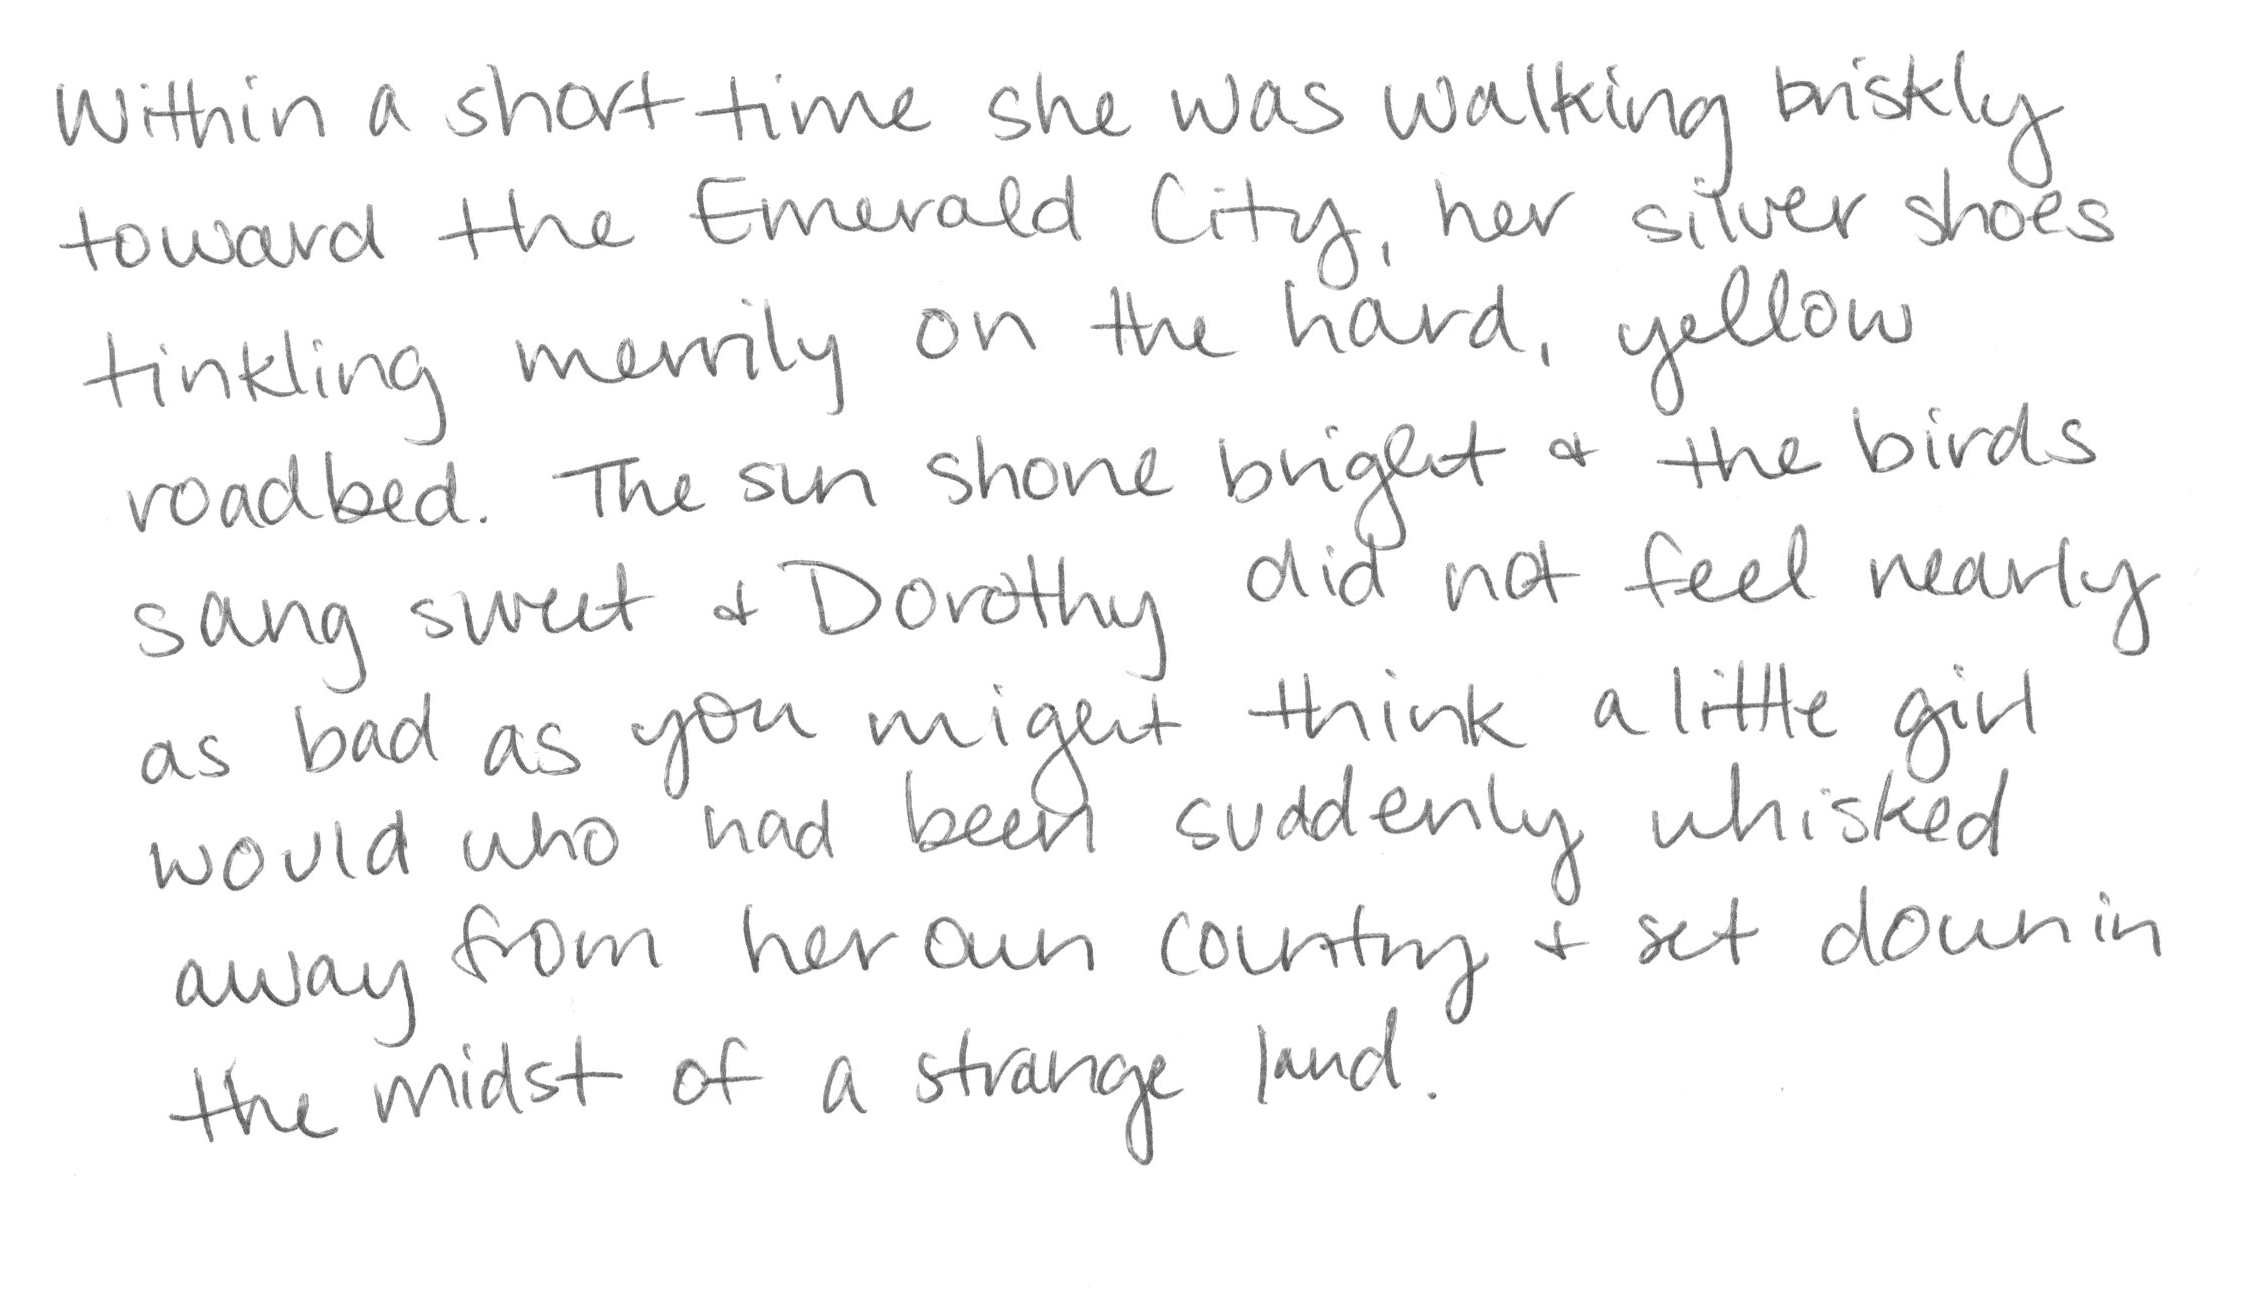 Within a short time she was walking briskly
toward the Emerald City, her silver shoes
tinkling merrily on the hard, yellow
roadbed. The sun shone bright & the birds
sang sweet & Dorothy did not feel nearly
as bad as you might think a little girl
would who had been suddenly whisked
away from her own country & set down in
the midst of a strange land.